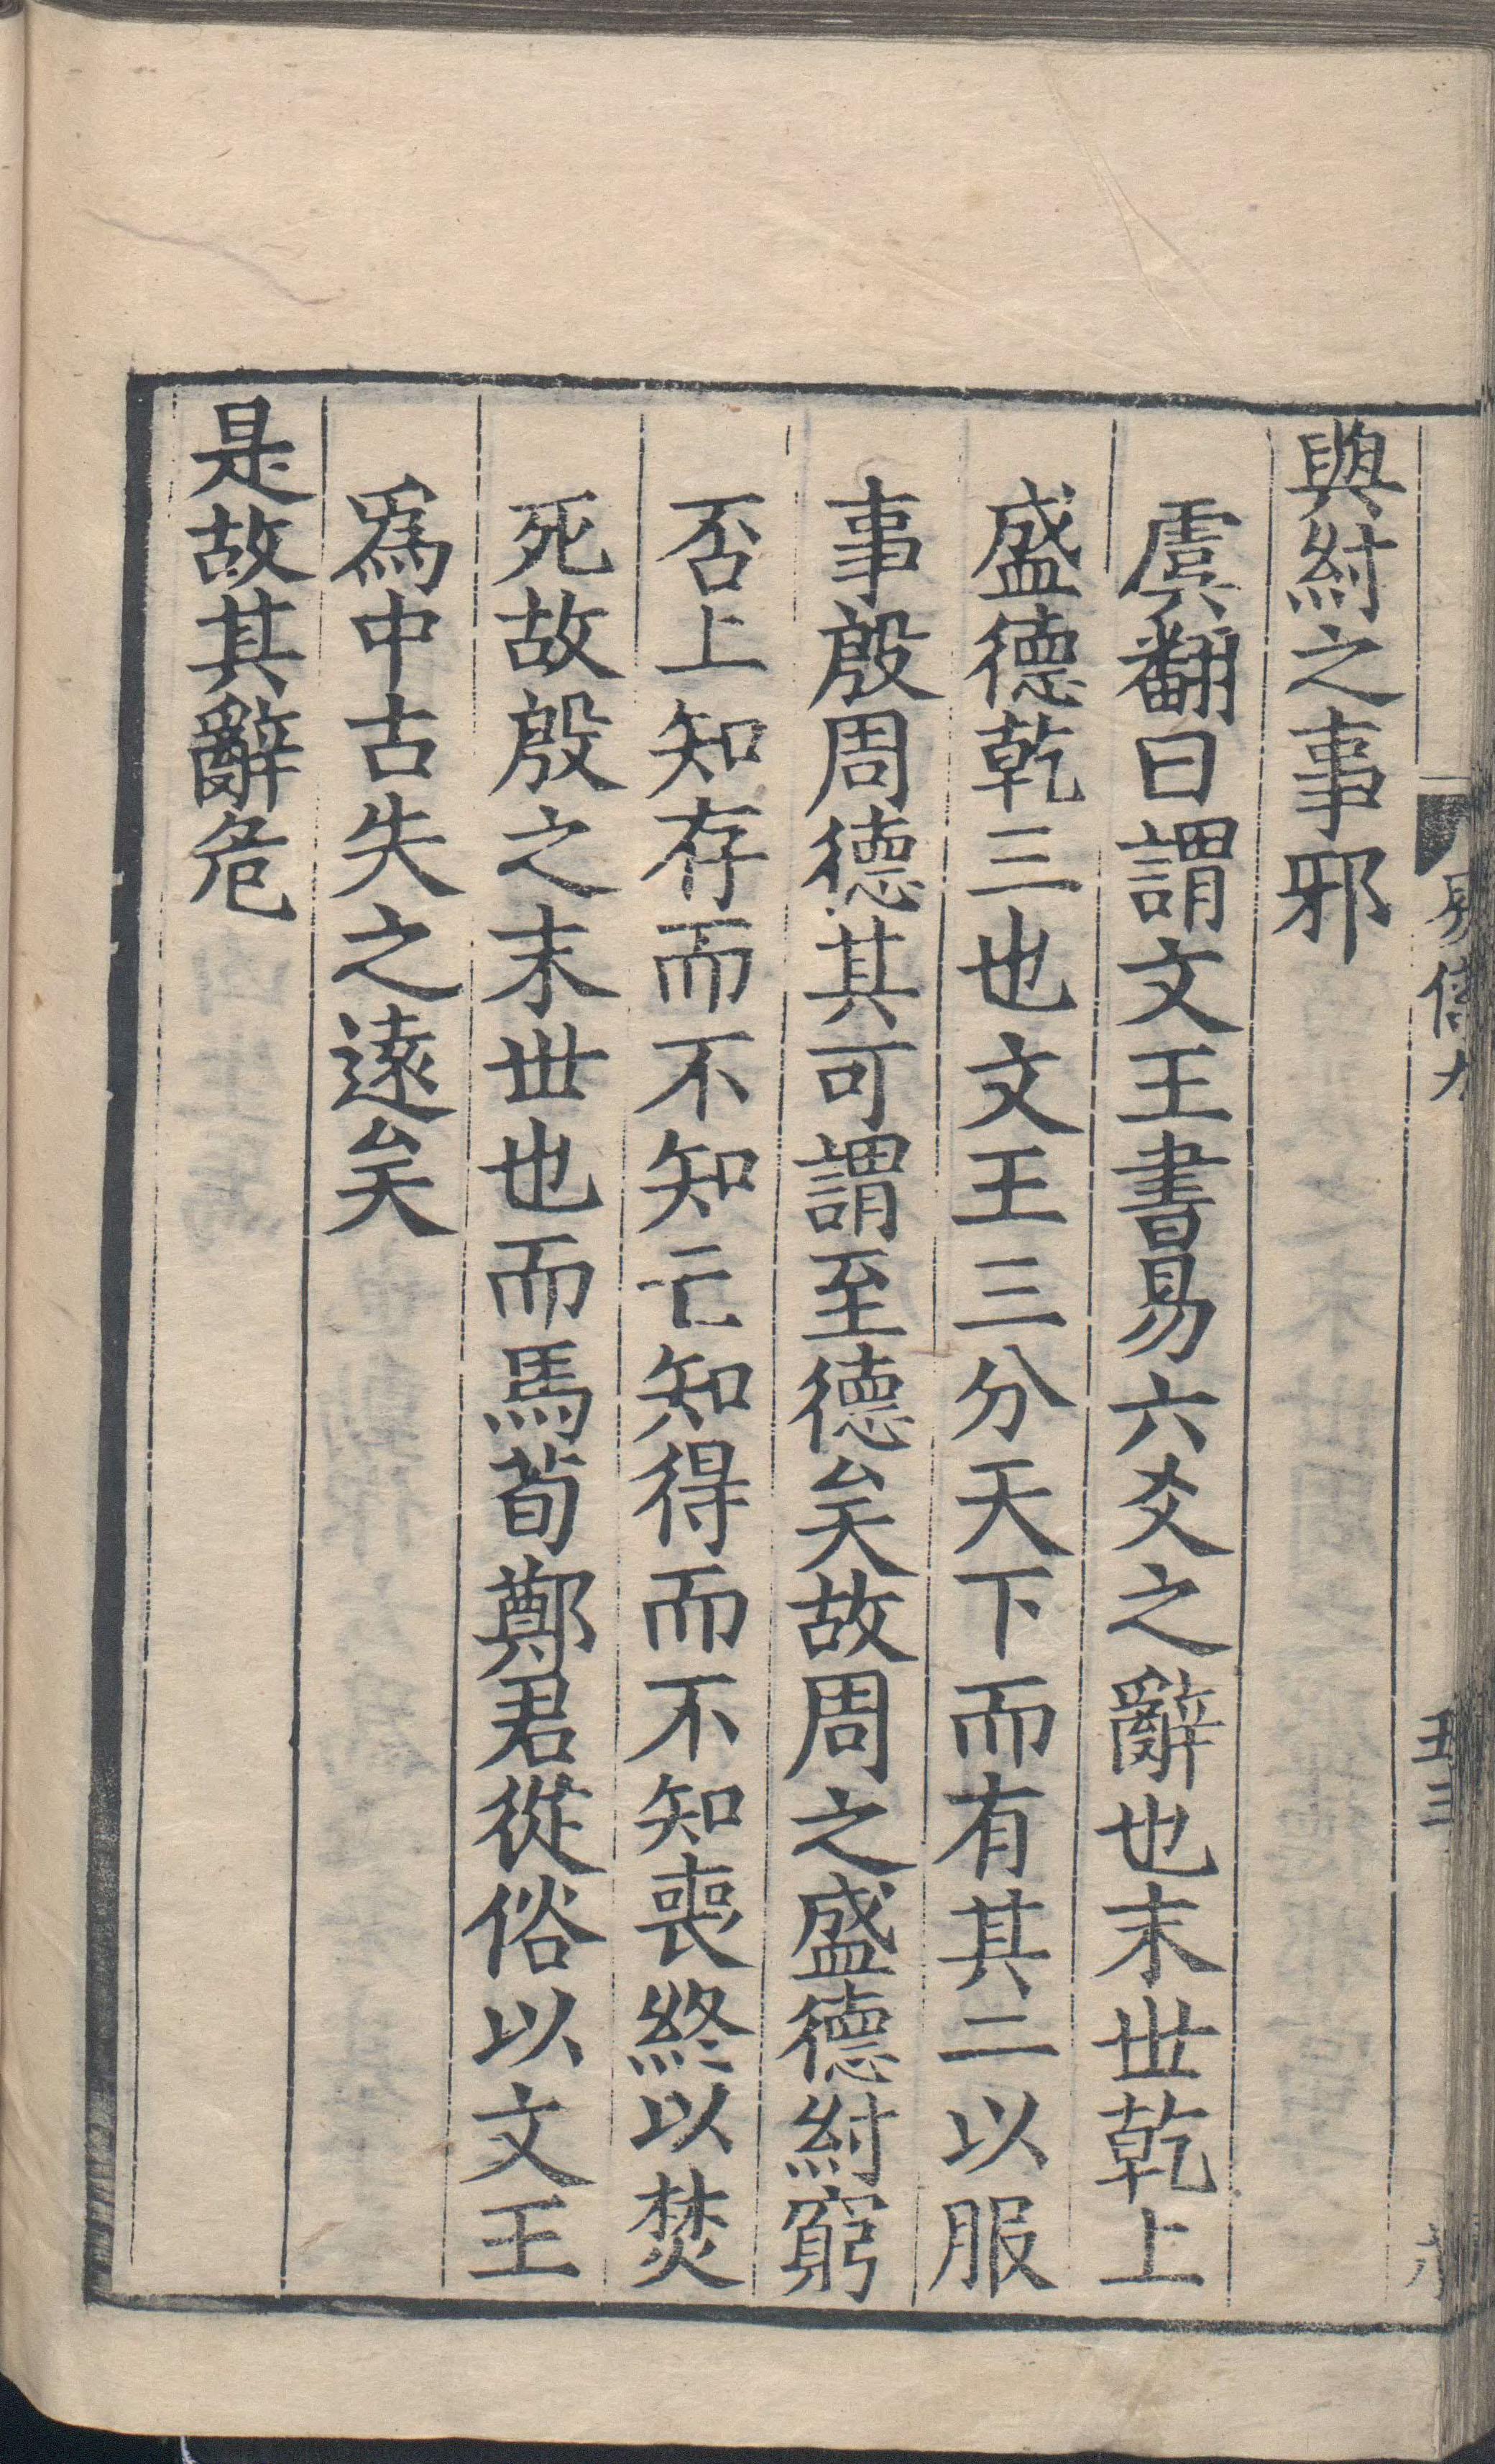 與紂之事邪
虞翻曰謂文王書易六爻之辭也末世乾上
盛德乾三也文王三分天下而有其二以服
事殷周德其可謂至德矣故周之盛德紂窮
否上知存而不知亡知得而不知喪終以焚
死故殷之末世也而馬荀鄭君從俗以文王
爲中古失之遠矣
是故其辭危